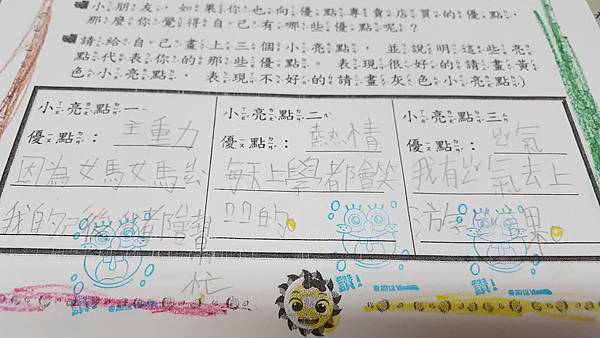 小朋友，如果你也向優點專賣店買的優點，
那麼你覺得自己有哪些優點呢？
請給自己畫上三個小亮點，並說明這些亮
點代表你的那些優點。表現很好的請畫黃
色小亮點，表現不好的請畫灰色小亮點)
小亮點一
優點：主重力
因為女馬女馬出
我的都會幫
忙
小亮點二
優點：熱情
每天上學都會笑
ㄇㄇ的
讚!
© 2012 Viacom
小亮點三
優點：ㄩㄥ氣
我有ㄩㄥ氣去上
讚!
© 2012 Viacom